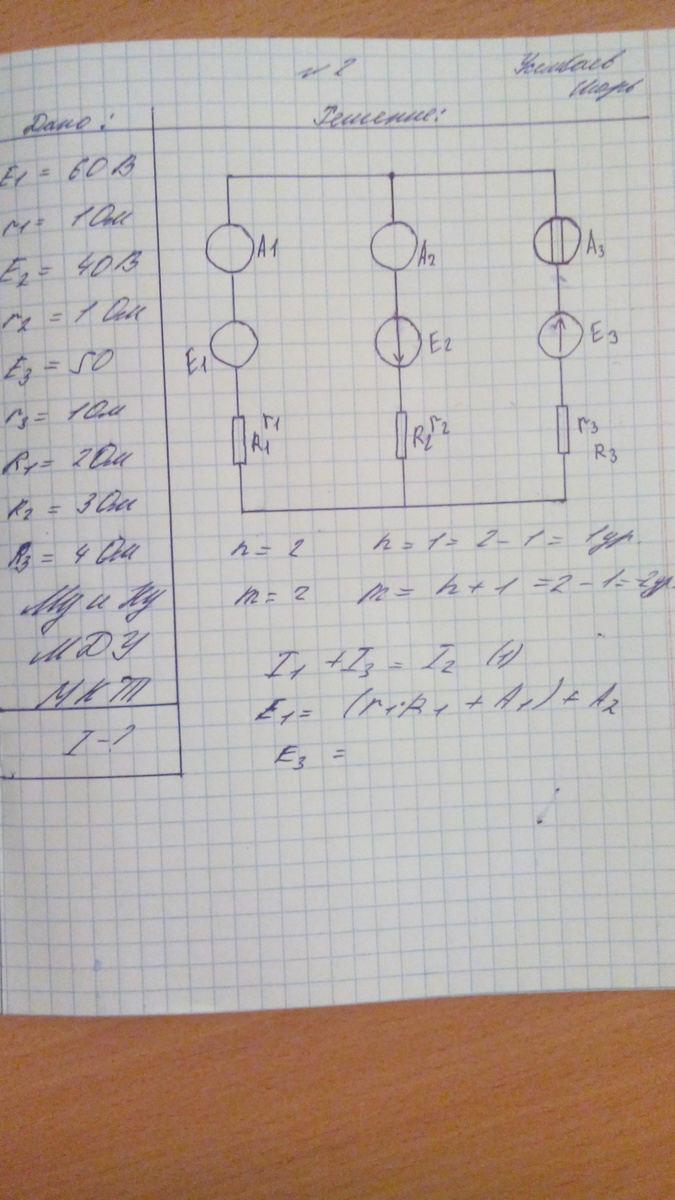 № 2
Дано:
Решение:
E1 = 60 В
r1 = 1 Ом
E2 = 40 В
r2 = 1 Ом
E3 = 50
r3 = 1 Ом
R1 = 2 Ом
R2 = 3 Ом
R3 = 4 Ом
МДУ
МКТ
I - ?
A1
A2
A3
E1
E2
E3
r1
R1
R2 r2
r3
R3
n = 2 n = 1 = 2 - 1 = 1 ур.
m = 2 m = n + 1 = 2 - 1 = 2 ур.
I1 + I3 = I2 (1)
E1 = (r1·R1 + A1) + A2
E3 =